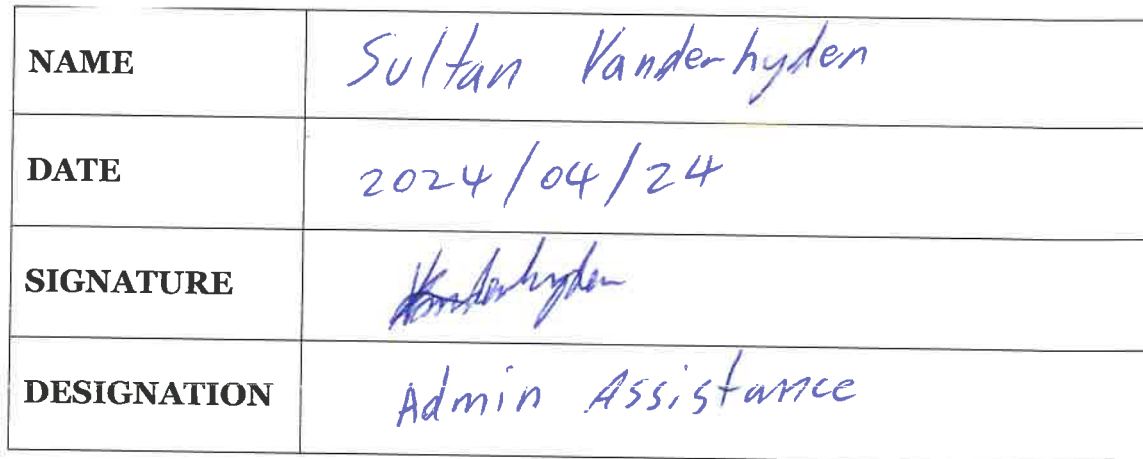 NAME Sultan Vanderhyden
DATE 2024/04/24
SIGNATURE Vanderhyden
DESIGNATION Admin Assistance